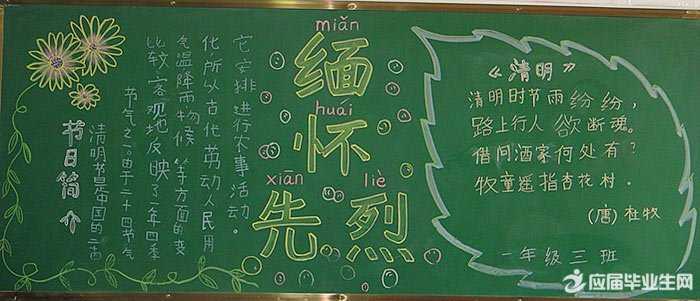 节日简介
清明节是中国的二十四
节气之一。由于二十四节气
比较客观地反映了一年四季
气温降雨物候等方面的变
化所以古代劳动人民用
它安排进行农事活动。
miǎn
缅
huái
怀
xiān liè
先烈
《清明》
清明时节雨纷纷，
路上行人欲断魂。
借问酒家何处有？
牧童遥指杏花村。
(唐) 杜牧
一年级三班
应届毕业生网